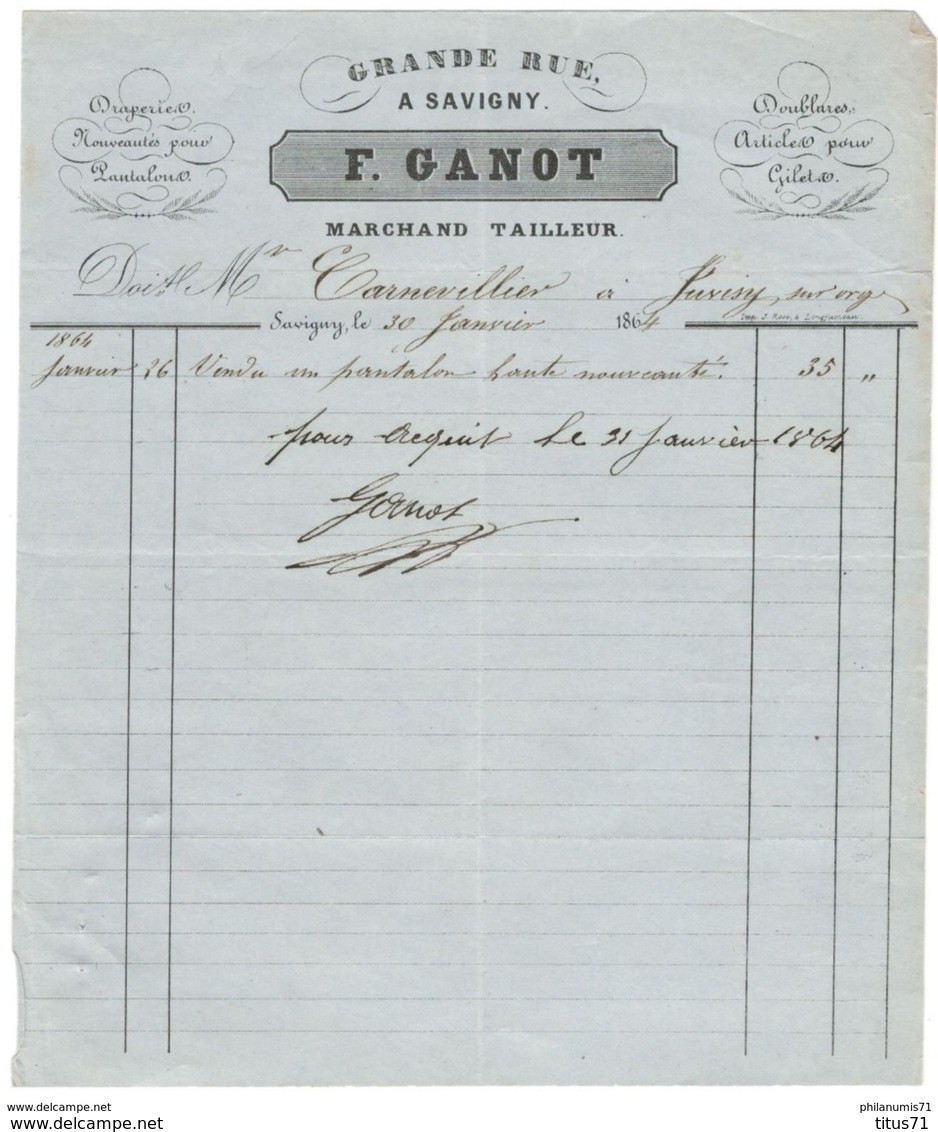 GRANDE RUE,
A SAVIGNY.
Draperies.
Nouveautés pour
Pantalons.
F. GANOT
Doublures,
Articles pour
Gilets.
MARCHAND TAILLEUR.
Doit M.r Carnevillier à Juvisy sur orge
Savigny, le 30 Janvier 1864
Imp. J. à Longjumeau.
1864
Janvier 26 Vendu un pantalon haute nouveauté. 35 "
pour acquit le 31 Janvier 1864
Ganot
philanumis71
www.delcampe.net
titus71